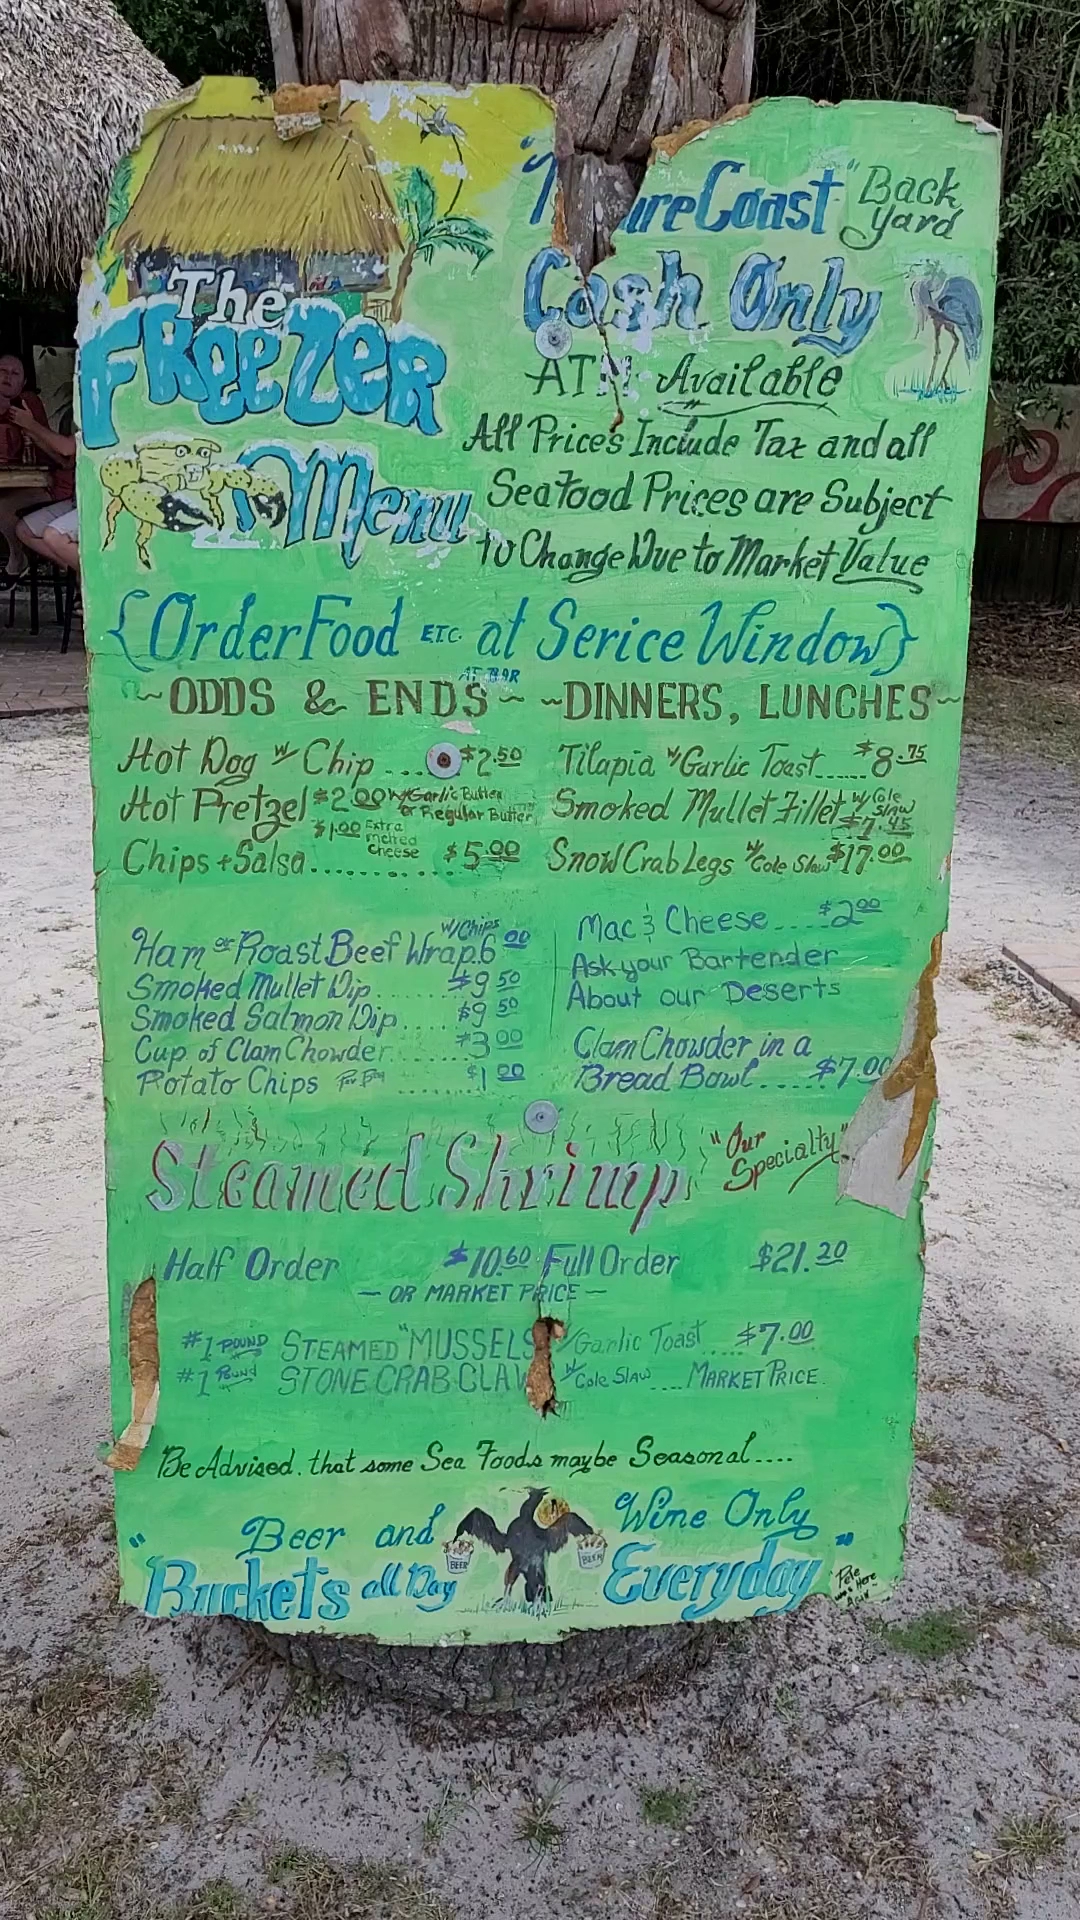 The
FReeZeR
Menu
ureCoast" Back
Yard
Cash Only
ATM Available
All Prices Include Tax and all
Seafood Prices are Subject
to Change Due to Market Value
{Order Food ETC. at Serice Window}
AT BAR
~ODDS & ENDS~
Hot Dog w/ Chip ... $2.50
Hot Pretzel $2.00 w/Garlic Butter
or Regular Butter
$1.00 Extra
melted
cheese
Chips + Salsa.............. $5.00
Ham or Roast Beef Wrap w/Chips 6.00
Smoked Mullet Dip........ $9.50
Smoked Salmon Dip..... $9.50
Cup of Clam Chowder...... $3.00
Potato Chips Per Bag ...... $1.00
~DINNERS, LUNCHES~
Tilapia w/Garlic Toast...... $8.75
Smoked Mullet Fillet w/ Cole
Slaw
$7.45
Snow Crab Legs w/Cole Slaw $17.00
Mac & Cheese..... $2.00
Ask your Bartender
About our Deserts
Clam Chowder in a
Bread Bowl.... $7.00
Steamed Shrimp "Our
Specialty"
Half Order $10.60 Full Order $21.20
— OR MARKET PRICE —
#1 POUND STEAMED "MUSSELS w/Garlic Toast..... $7.00
#1 Pound STONE CRAB CLAW w/Cole Slaw .... MARKET PRICE.
Be Advised. that some Sea Foods maybe Seasonal....
Beer and
"Buckets all Day
BEER
BEER
Wine Only
Everyday"
Pete
was Here
Again